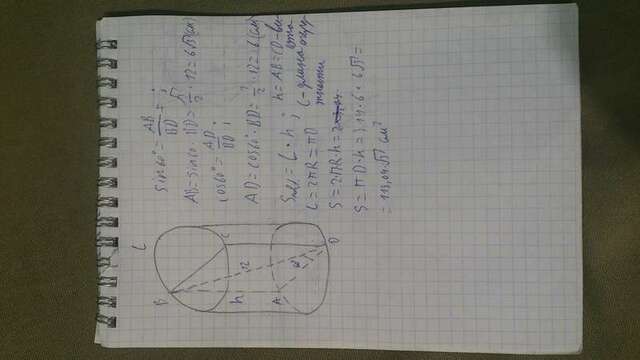 sin60° = AB/BD = ;
AB = sin60 · BD = √3/2 · 12 = 6√3 (см)
cos60° = AD/BD ;
AD = cos60° · BD = 1/2 · 12 = 6 (см)
Sпов = C · h ; h = AB = CD - высота
C = 2πR = πD C - длина окружности
S = 2πR · h = 2
S = πD · h = 3,14 · 6 · 6√3 =
= 113,04√3 см²
C
B
C
12
h
A
D